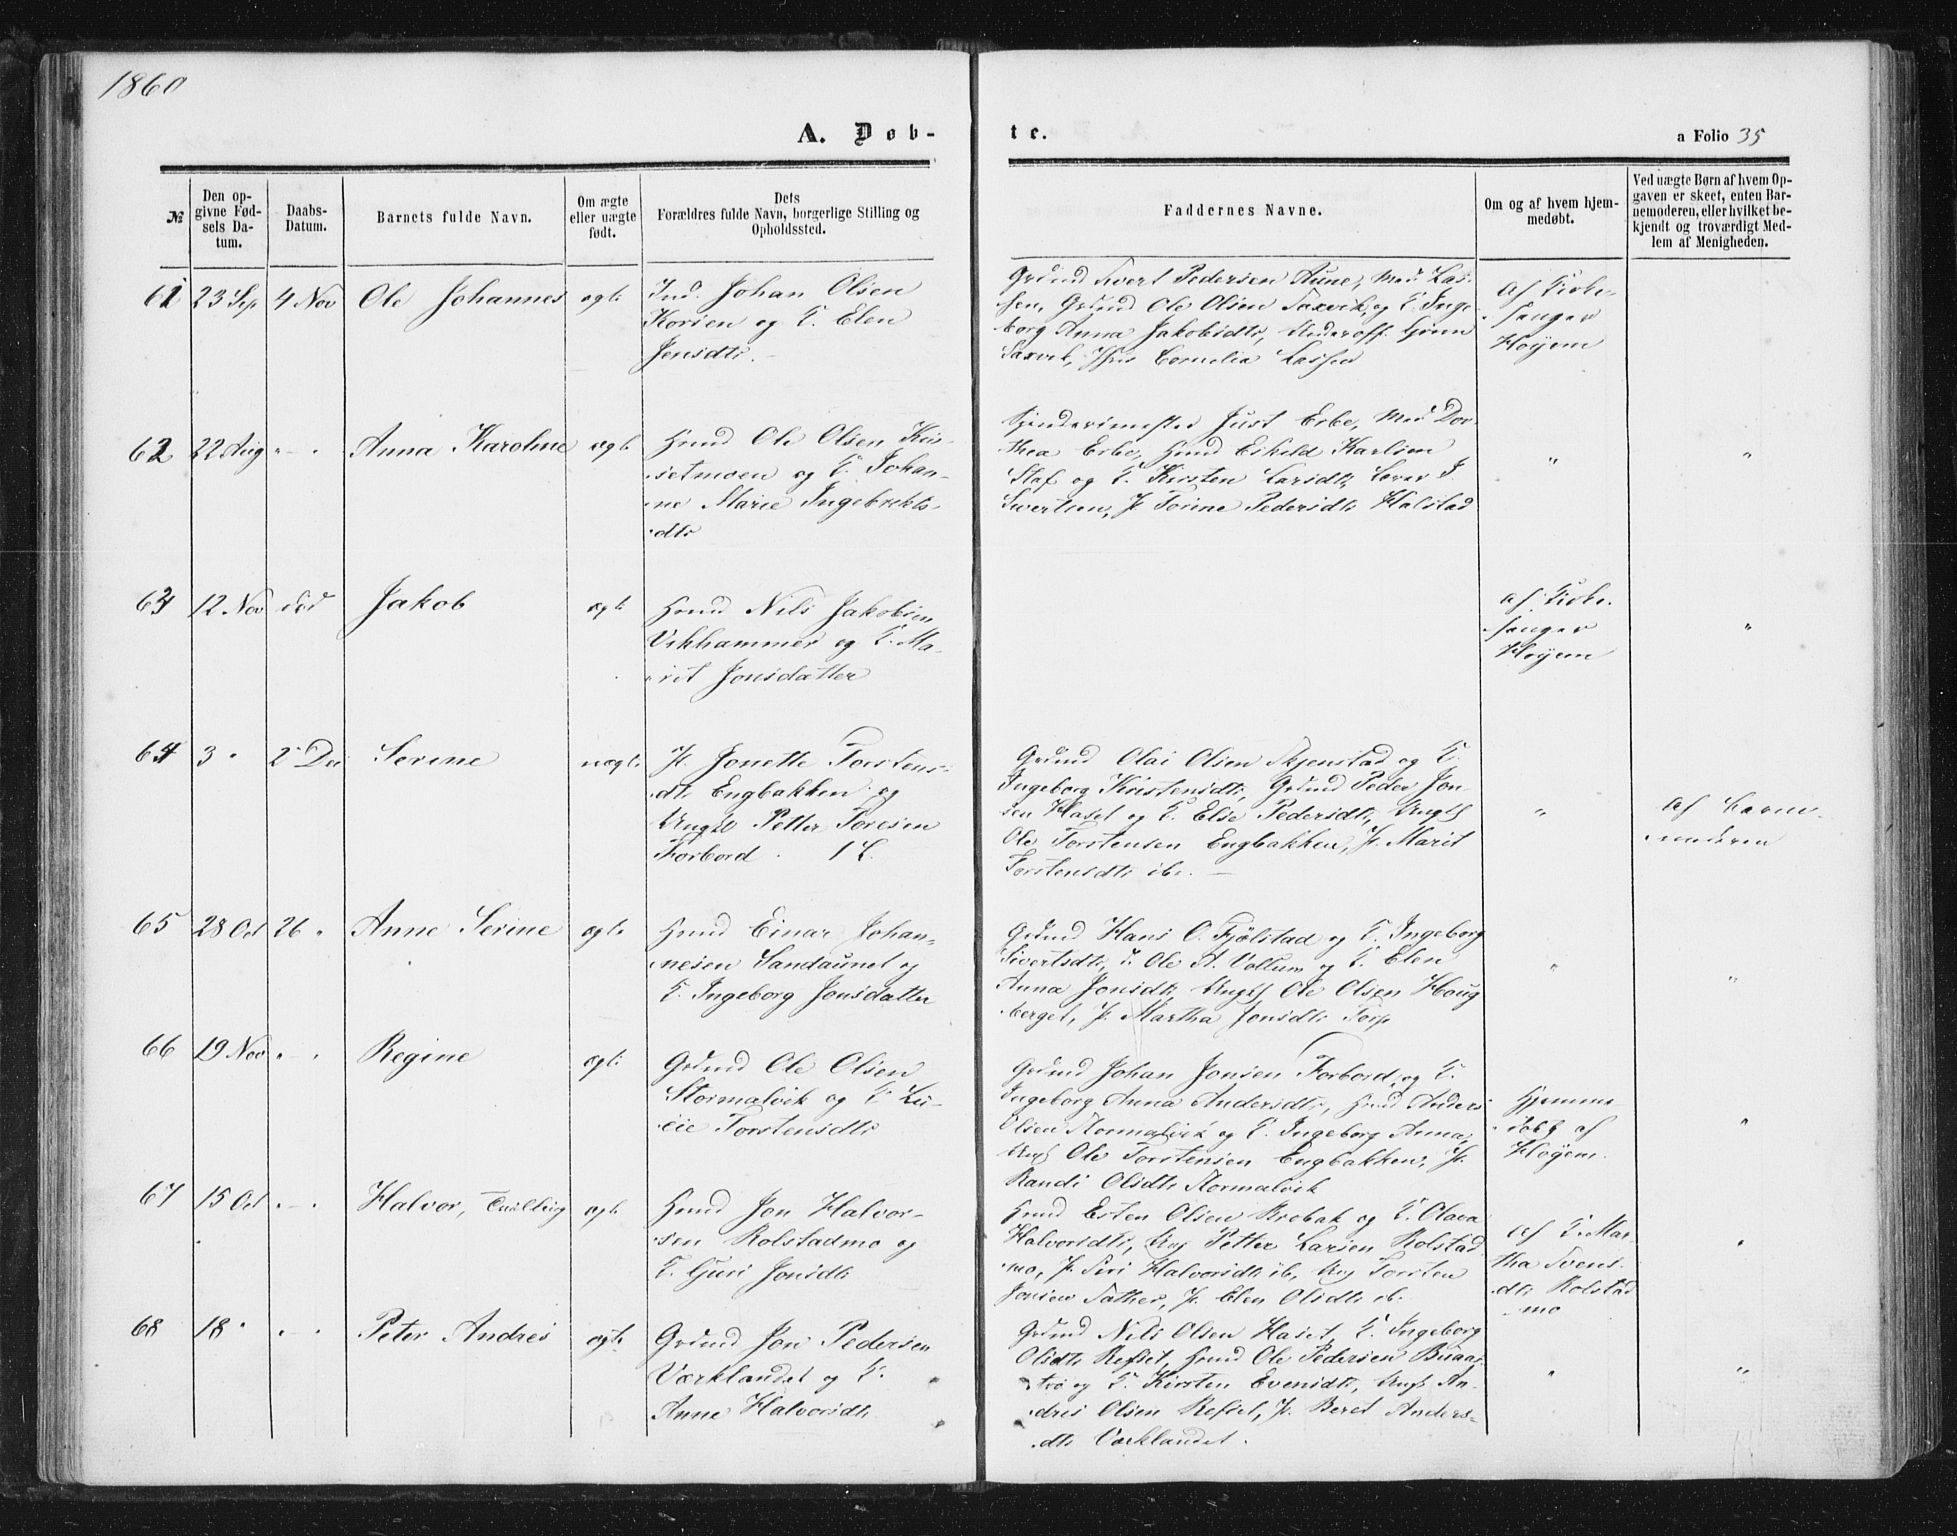 1860
A. Døb-
te.
a Folio 35
№
Den op-
givne Fød-
sels Da-
tum.
Daabs-
Datum.
Barnets fulde Navn.
Om ægte
eller uægte
født.
Dets
Forældres fulde Navn, borgerlige Stilling og
Opholdssted.
Faddernes Navne.
Om og af hvem hjem-
medøbt.
Ved uægte Børn af hvem Op-
gaven er skeet, enten Bar-
nemoderen, eller hvilket be-
kjendt og troværdigt Med-
lem af Menigheden.
61 23 Sep 4 Nov Ole Johannes ægte
Ind. Johan Olsen
Korsen og K. Elen
Jensdtr.
Grdmd Sivert Pedersen Aune, Mad. Las-
sen, Grdmd Ole Olsen Saxvik, og K. Inge-
borg Anna Jakobsdtr, Underoff. Grønn
Saxvik, Jfr Cornelia Lassen
Af Kirke-
sanger
Høyem
62 22 Aug " - " Anna Karoline ægte
Hmd Ole Olsen Kus-
setmoen og K. Johan-
ne Marie Ingebrekts-
dtr
Just Erbe, Mad Dor-
thea Erbe, Hmd Eskild Karlsen
Staf og K. Kirsten Larsdtr, Lærer J.
Sivertsen, P. Torine Pedersdtr Halstad
"
"
63 12 Nov død Jakob ægte
Hmd Nils Jakobsen
Vikhammer og K. Ma-
rit Jonsdatter
af Kirke-
sanger
Høyem
"
64 3 " 2 Dec Serine uægte
P. Jonette Torstens-
dtr Engbakken og
Ungk Petter Toresen
Forbord. 1 L.
Grdmd Olai Olsen Skjenstad og K.
Ingeborg Kristensdtr, Grdmd Peder Jon-
sen Haset og K. Else Pedersdtr, Ungk
Ole Torstensen Engbakken, P. Marit
Torstensdtr ib. -
"
Af Barne-
moderen
65 28 Oct 26 " Anne Serine ægte
Hmd Einar Johan-
nesen Sandaunet og
K. Ingeborg Jonsdatter
Grdmd Hans O. Fjølstad og K. Ingeborg
Sivertsdtr, Ole A. Vollum og K. Elen
Anna Jonsdtr Ungk Ole Olsen Houg-
berget, P. Martha Jonsdtr Torp
"
"
66 19 Nov " - " Regine ægte
Grdmd Ole Olsen
Stormalvik og K. Lu-
cie Torstensdtr
Grdmd Johan Jonsen Forbord, og K.
Ingeborg Anna Andersdtr, Hmd Anders
Olsen Stormalvik og K. Ingeborg Anna,
Ungk Ole Torstensen Engbakken, P.
Randi Olsdtr Stormalvik
Hjemme-
døbt af
Høyem.
"
67 15 Oct " - " Halvor, Tvilling ægte
Hmd Jon Halvor-
sen Rolstadmo og
K. Guri Jonsdtr
Hmd Esten Olsen Brebak og K. Olava
Halvorsdtr, Ung Petter Larsen Rolstad
mo, P. Siri Halvorsdtr ib, Ung Torsten
Jonsen Tather, P. Elen Olsdtr ib.
Af K. Mar-
tha Svens-
dtr Rolstad
mo
"
68 18 " " - " Peter Andreas ægte
Grdmd Jon Pedersen
Værklandet og K.
Anne Halvorsdtr
Grdmd Nils Olsen Haset, K. Ingeborg
Olsdtr Refset, Hmd Ole Pedersen Buaas-
trø og K. Kirsten Evensdtr, Ungk An-
dris Olsen Refset, P. Beret Anders-
dtr Værklandet.
"
"